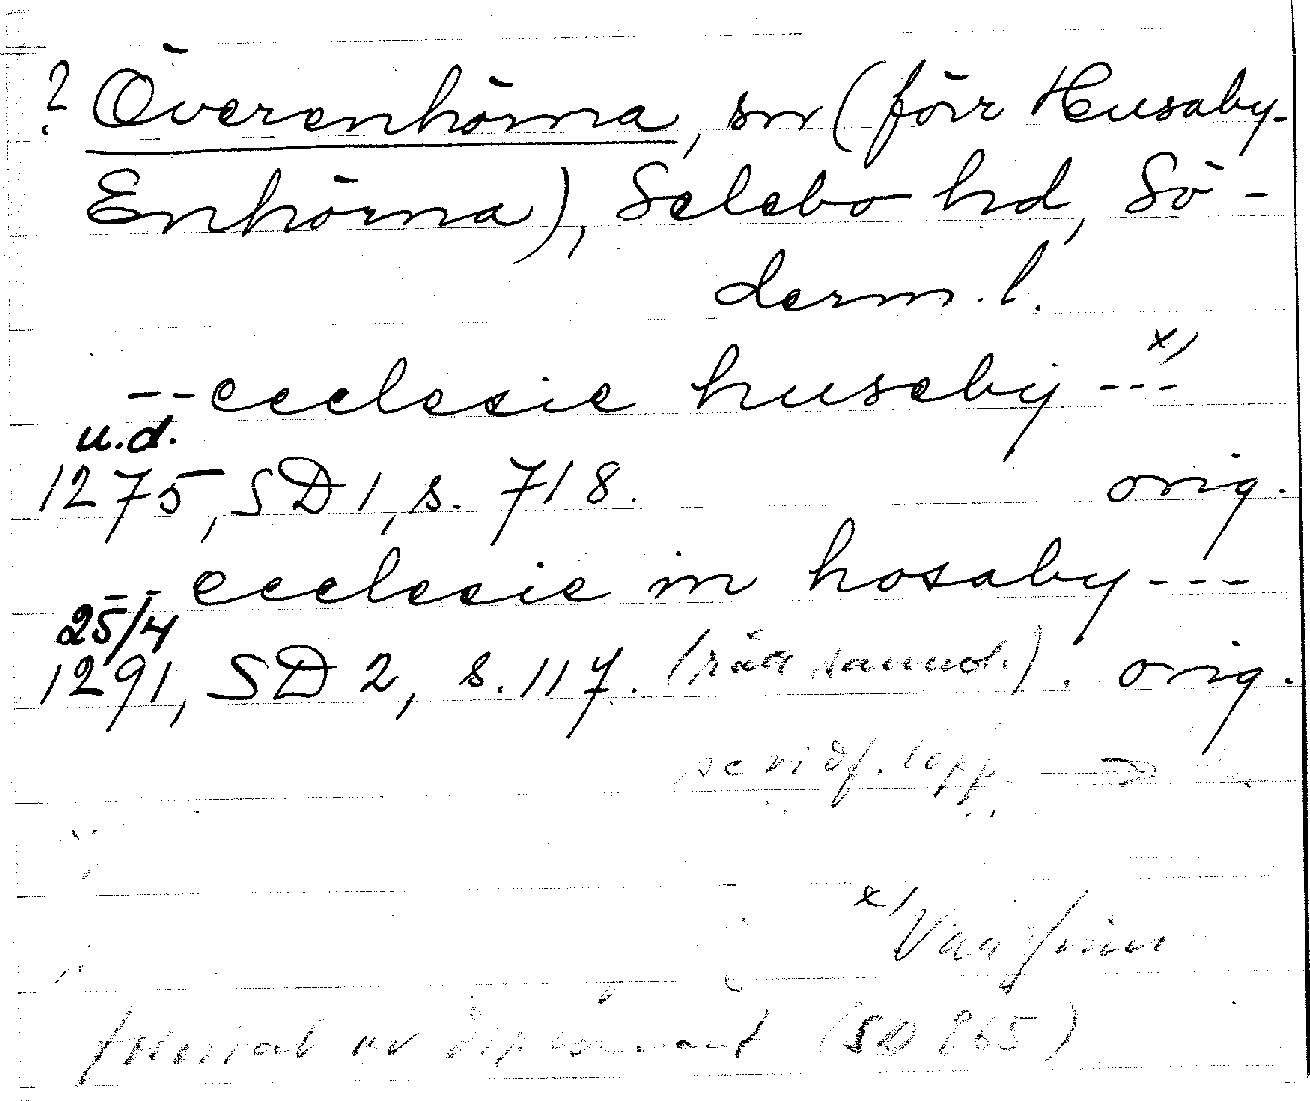 ? Överenhörna, sn (förr Husaby-
Enhörna), Selebo hd, Sö-
derm. l.
--ecclesie huseby --- x)
u.d.
1275, SD 1, s. 718. orig.
-- ecclesie in hosaby ---
25/4
1291, SD 2, s. 117. (rätt samml.). orig.
se vidf. lapp →
x) Var finns
av (SD 865)